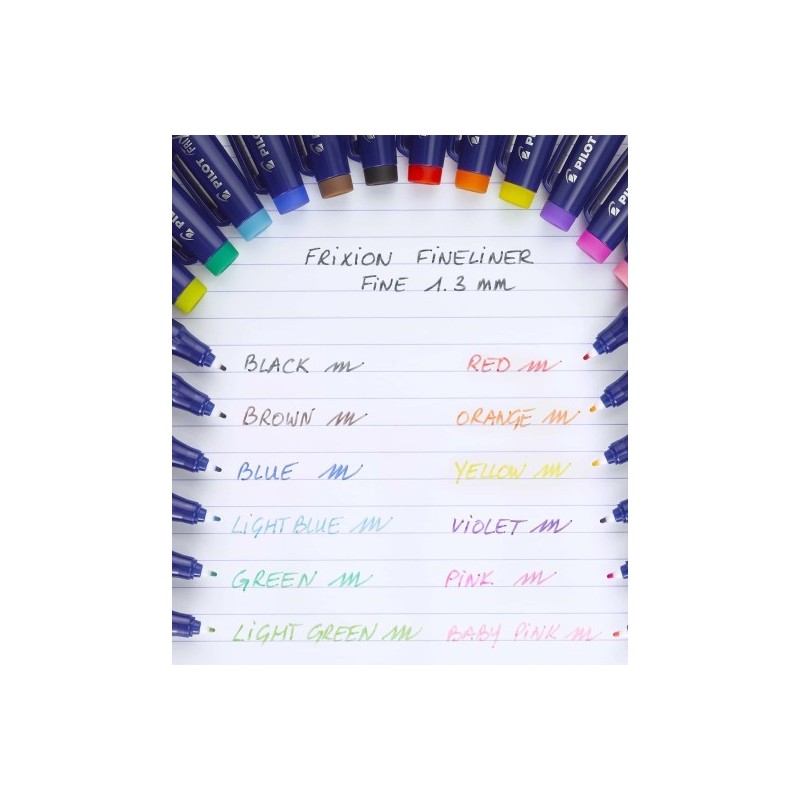 PILOT FRIX
PILOT
PILOT
PILOT
PILOT
PIL
FRIXION FINELINER
FINE 1.3 mm
BLACK m RED m
BROWN m ORANGE m
BLUE m YELLOW m
LIGHT BLUE m VIOLET m
GREEN m PINK m
LIGHT GREEN m BABY PINK m